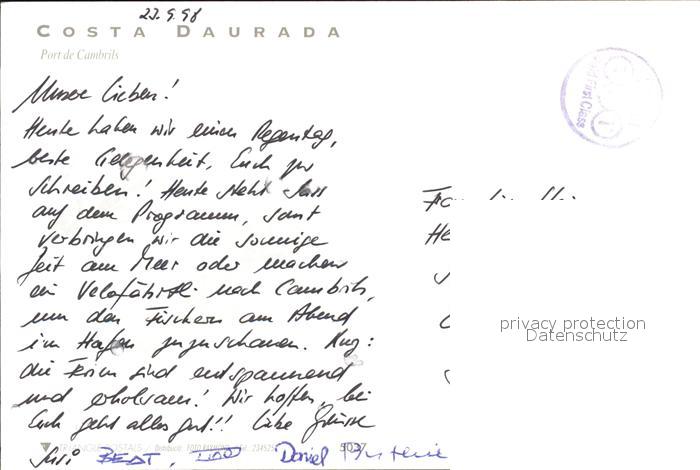 23.9.98
COSTA DAURADA
Port de Cambrils
Unsere Lieben!
Heute haben wir einen Regentag,
beste Gelegenheit, Euch zu
schreiben! Heute steht
auf dem Programm, sonst
verbringen wir die sonnige
Zeit am Meer oder machen
ein Velofährtli nach Cambrils,
um den Fischern am Abend
im Hafen zuzuschauen. Kurz:
die Ferien sind entspannend
und erholsam! Wir hoffen, bei
Euch geht alles gut!! Liebe Grüsse
BEAT, Daniel
TRIANGLE POSTALS
5037
First Class
privacy protection
Datenschutz